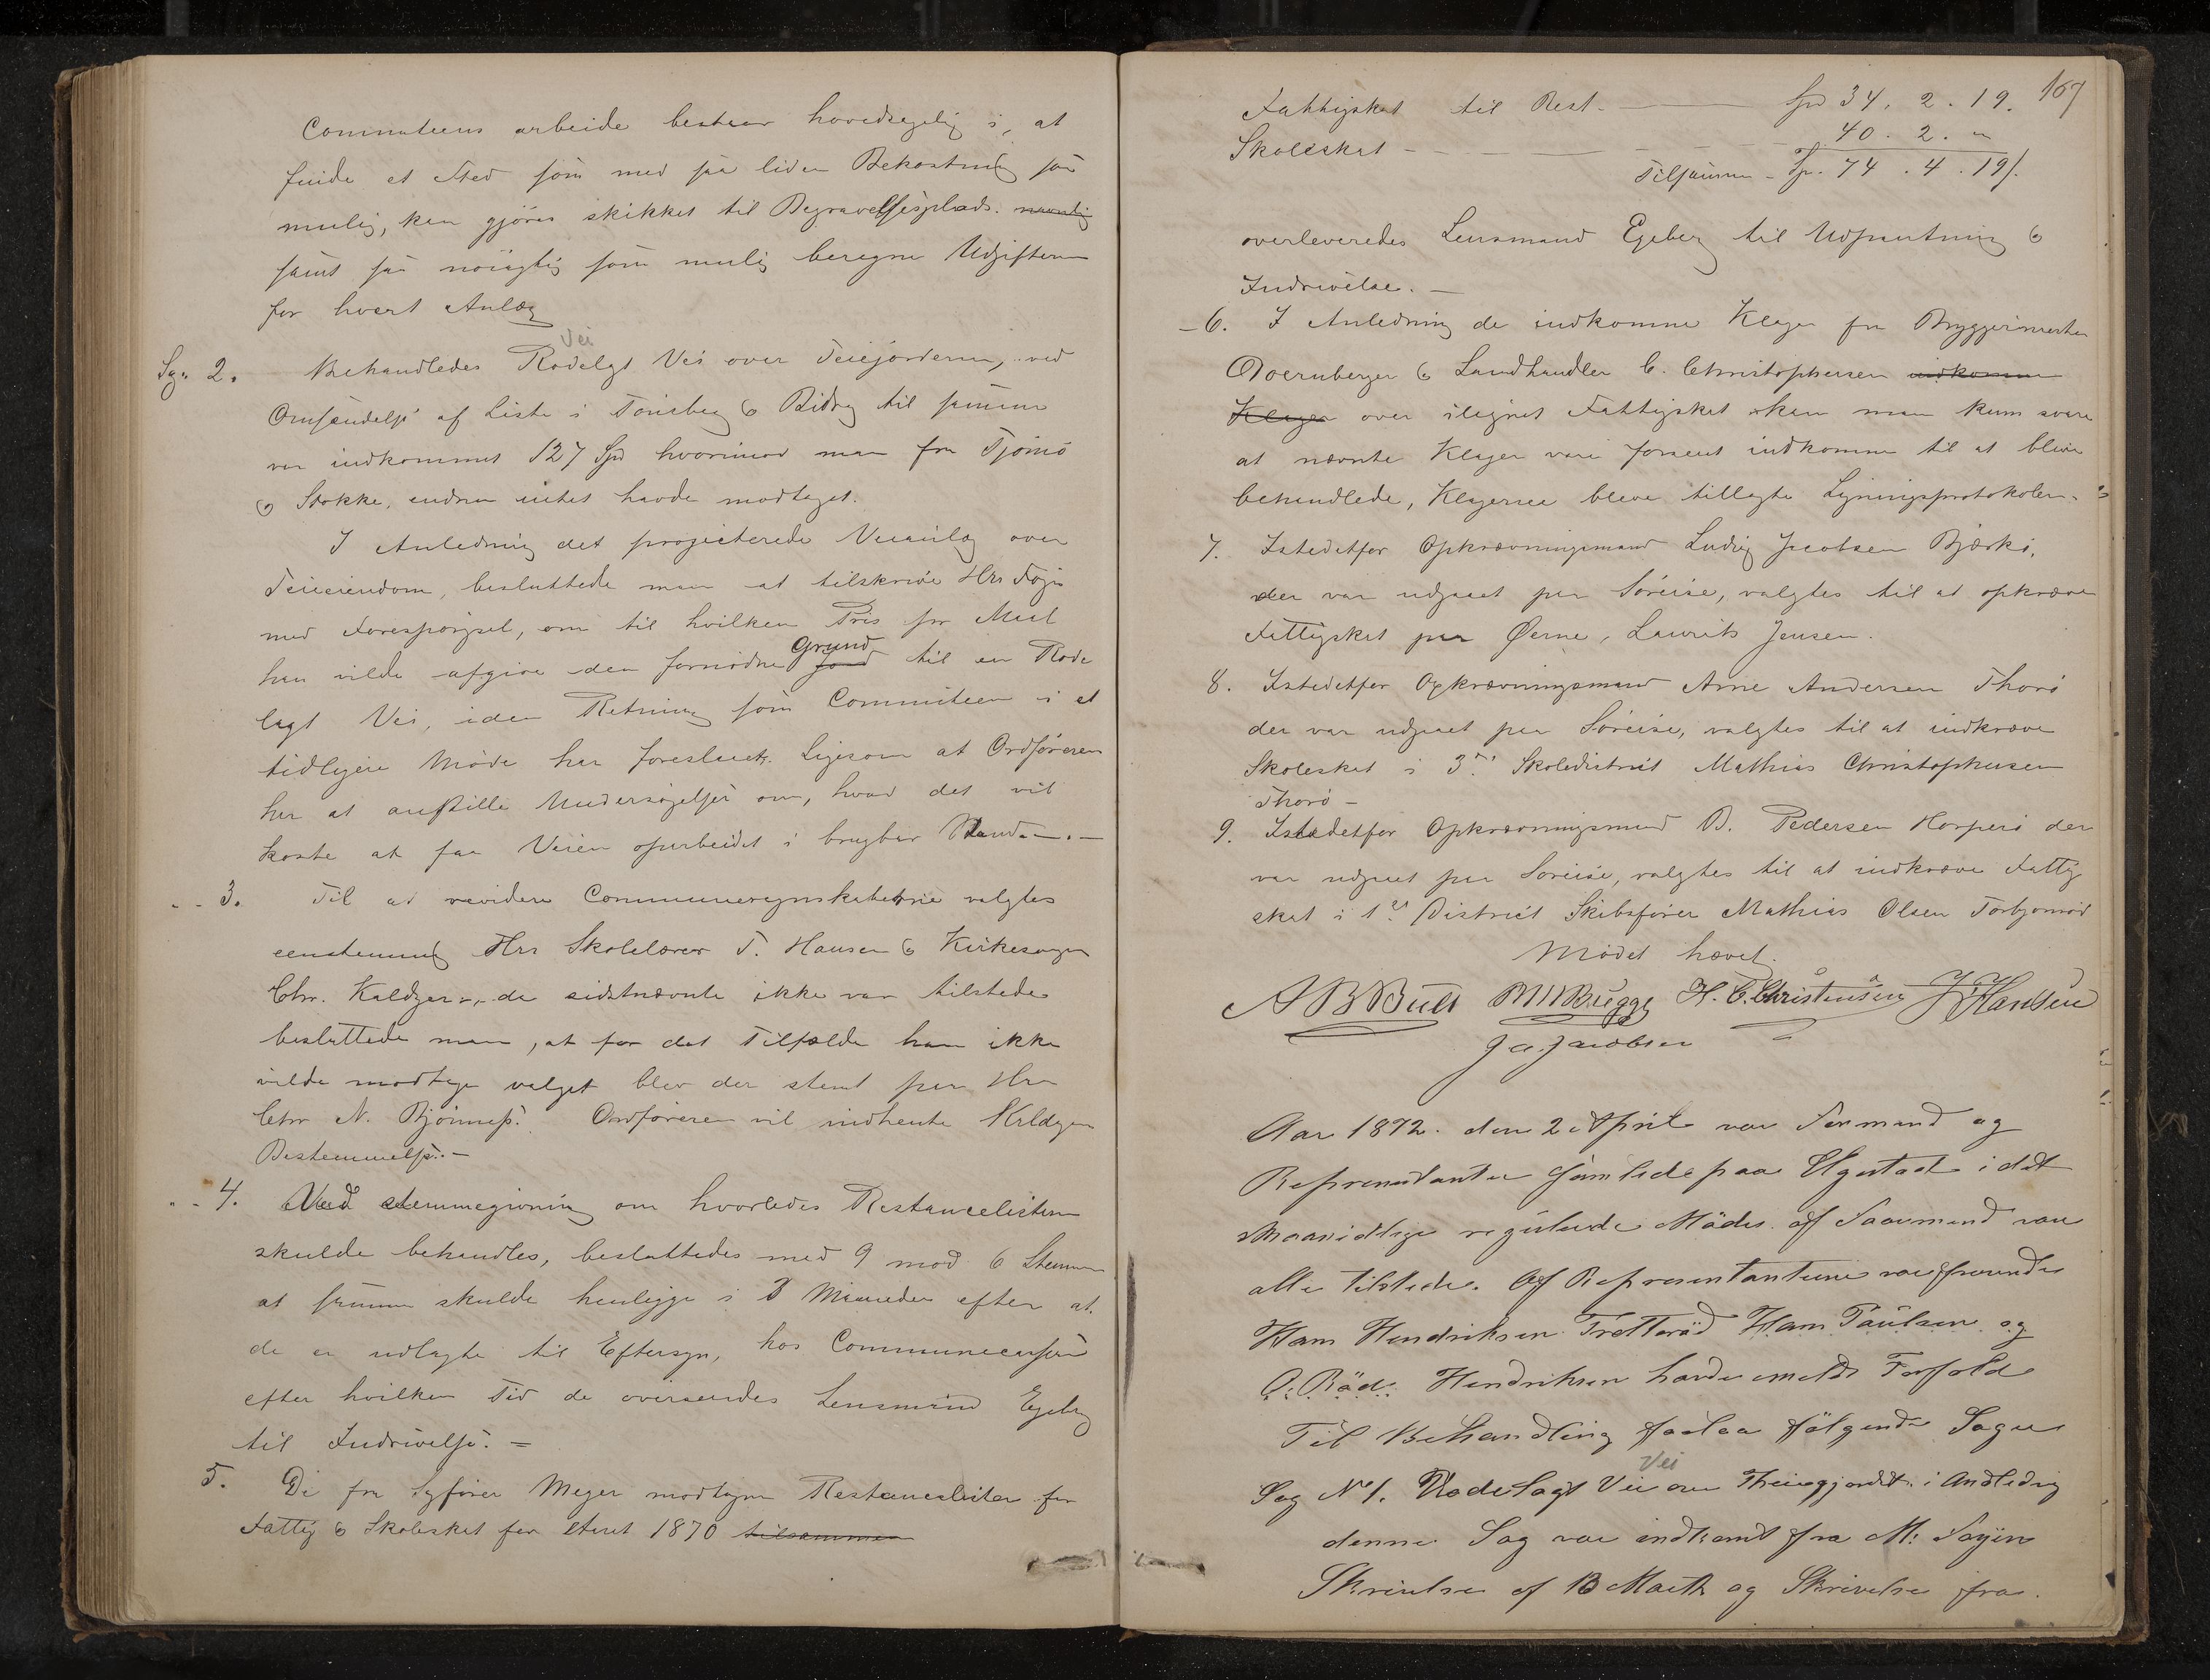 Committeens arbeide bestaar hovedsagelig i, at
finde et Sted som med saa liden Bekostning som
mulig, kan gjöres skikket til Begravelsesplads. navnlig
samt saa nöiagtig som mulig beregne Udgifterne
for hvert Anlæg
Vei
Sag 2. Behandledes Rodelagt Vei over Teiejorderne, ved
Omsendelse af Liste i Tönsberg og Bidrag til samme
var indkommet 127 Spd hvorimod man fra Tjömö
og Stokke, endnu intet havde modtaget.
I Anledning det projecterede Veianlæg over
Teieeiendom, besluttede man at tilskrive Hrr Foyn
med Forespörgsel, om til hvilken Pris pr Maal
Grund
han vilde afgive den fornödne Jord til en Rode
lagt Vei, i den Retning som Committeen i et
tidligere Möde har foreslaaet. Ligesom at Ordföreren
har at anstille Undersögelser om, hvad det vil
koste at faa Veien oparbeidet i brugbar Stand. —
" - 3. Til at revidere Communeregnskaberne valgtes
eenstemmig Hrr Skolelærer T. Hansen og Kirkesanger
Chr. Kaldager, da sidstnævnte ikke var tilstede
besluttede man, at for det Tilfælde han ikke
vilde modtage valget blev der stemt paa Hrr
Chr N. Bjönnes. Ordföreren vil indhente Kaldager
Bestemmelse. —
" - 4. Ved stemmegivning om hvorledes Restancelisterne
skulde behandles, besluttedes med 9 mod 6 Stemmer
at samme skulde henligge i 3 Maaneder efter at
de er udlagte til Eftersyn, hos Communecasser
efter hvilken Tid de oversendes Lensmand Egeberg
til Inddrivelse. —
5. De fra Sagförer Meyer modtagne Restancelister for
Fattig og Skoleskat for Aaret 1870 tilsammen
167
Fattigskat til Rest. — Spd 34. 2. 19.
Skoleskat - — 40. 2. "
Tilsammen - Sp. 74. 4. 19 /.
overleveredes Lensmand Egeberg til Udpantning og
Inddrivelse. —
- 6. I Anledning de indkomne Klager fra Bryggerimester
Doernberger og Landhandler C. Christophersen indkomne
Klager over ilignet Fattigskat skar man kun svare
at nævnte Klager vare forsent indkomne til at blive
behandlede, Klagerne bleve tillagte Ligningsprotokolen.
7. Istedetfor Opkrævningsmand Ludvig Jacobsen Bjærkö,
der var udgaaet paa Söreise, valgtes til at opkræve
Fattigskat paa Øerne, Laurits Jensen.
8. Istedetfor Opkrævningsmand Arne Andersen Thorö
der var udgaaet paa Söreise, valgtes til at indkræve
Skoleskat i 3die Skoledistrict Mathias Christophersen
Thorö -
9. Istedetfor Opkrævningsmand B. Pedersen Horperö der
var udgaaet paa Söreise, valgtes til at indkræve Fattig
skat i 1ste District Skibsförer Mathias Olsen Torbjornröd
Mödet hævet.
A B Bull B M Brügge H. C. Christensen J. Hansen
J A. Jacobsen
Aar 1872. den 2 April var Formænd og
Repræsentanter samlede paa Elgestad i det
maanidtlige regulerede Möde. Af Formænd var
alle tilstede. Af Repræsentanterne var fraværende
Hans Hendriksen Tretteröd Hans Paulsen og
O: Röd. Hendriksen havde emeldt Forfald
Til Behandling forelaa fölgende Sager
Vei
Sag No 1. Rodelagt Vei over Theiegjordet. i Andledning
denne Sag var indkomt fra M: Foyen
Skrivelse af 13 Marth og Skrivelse fra.